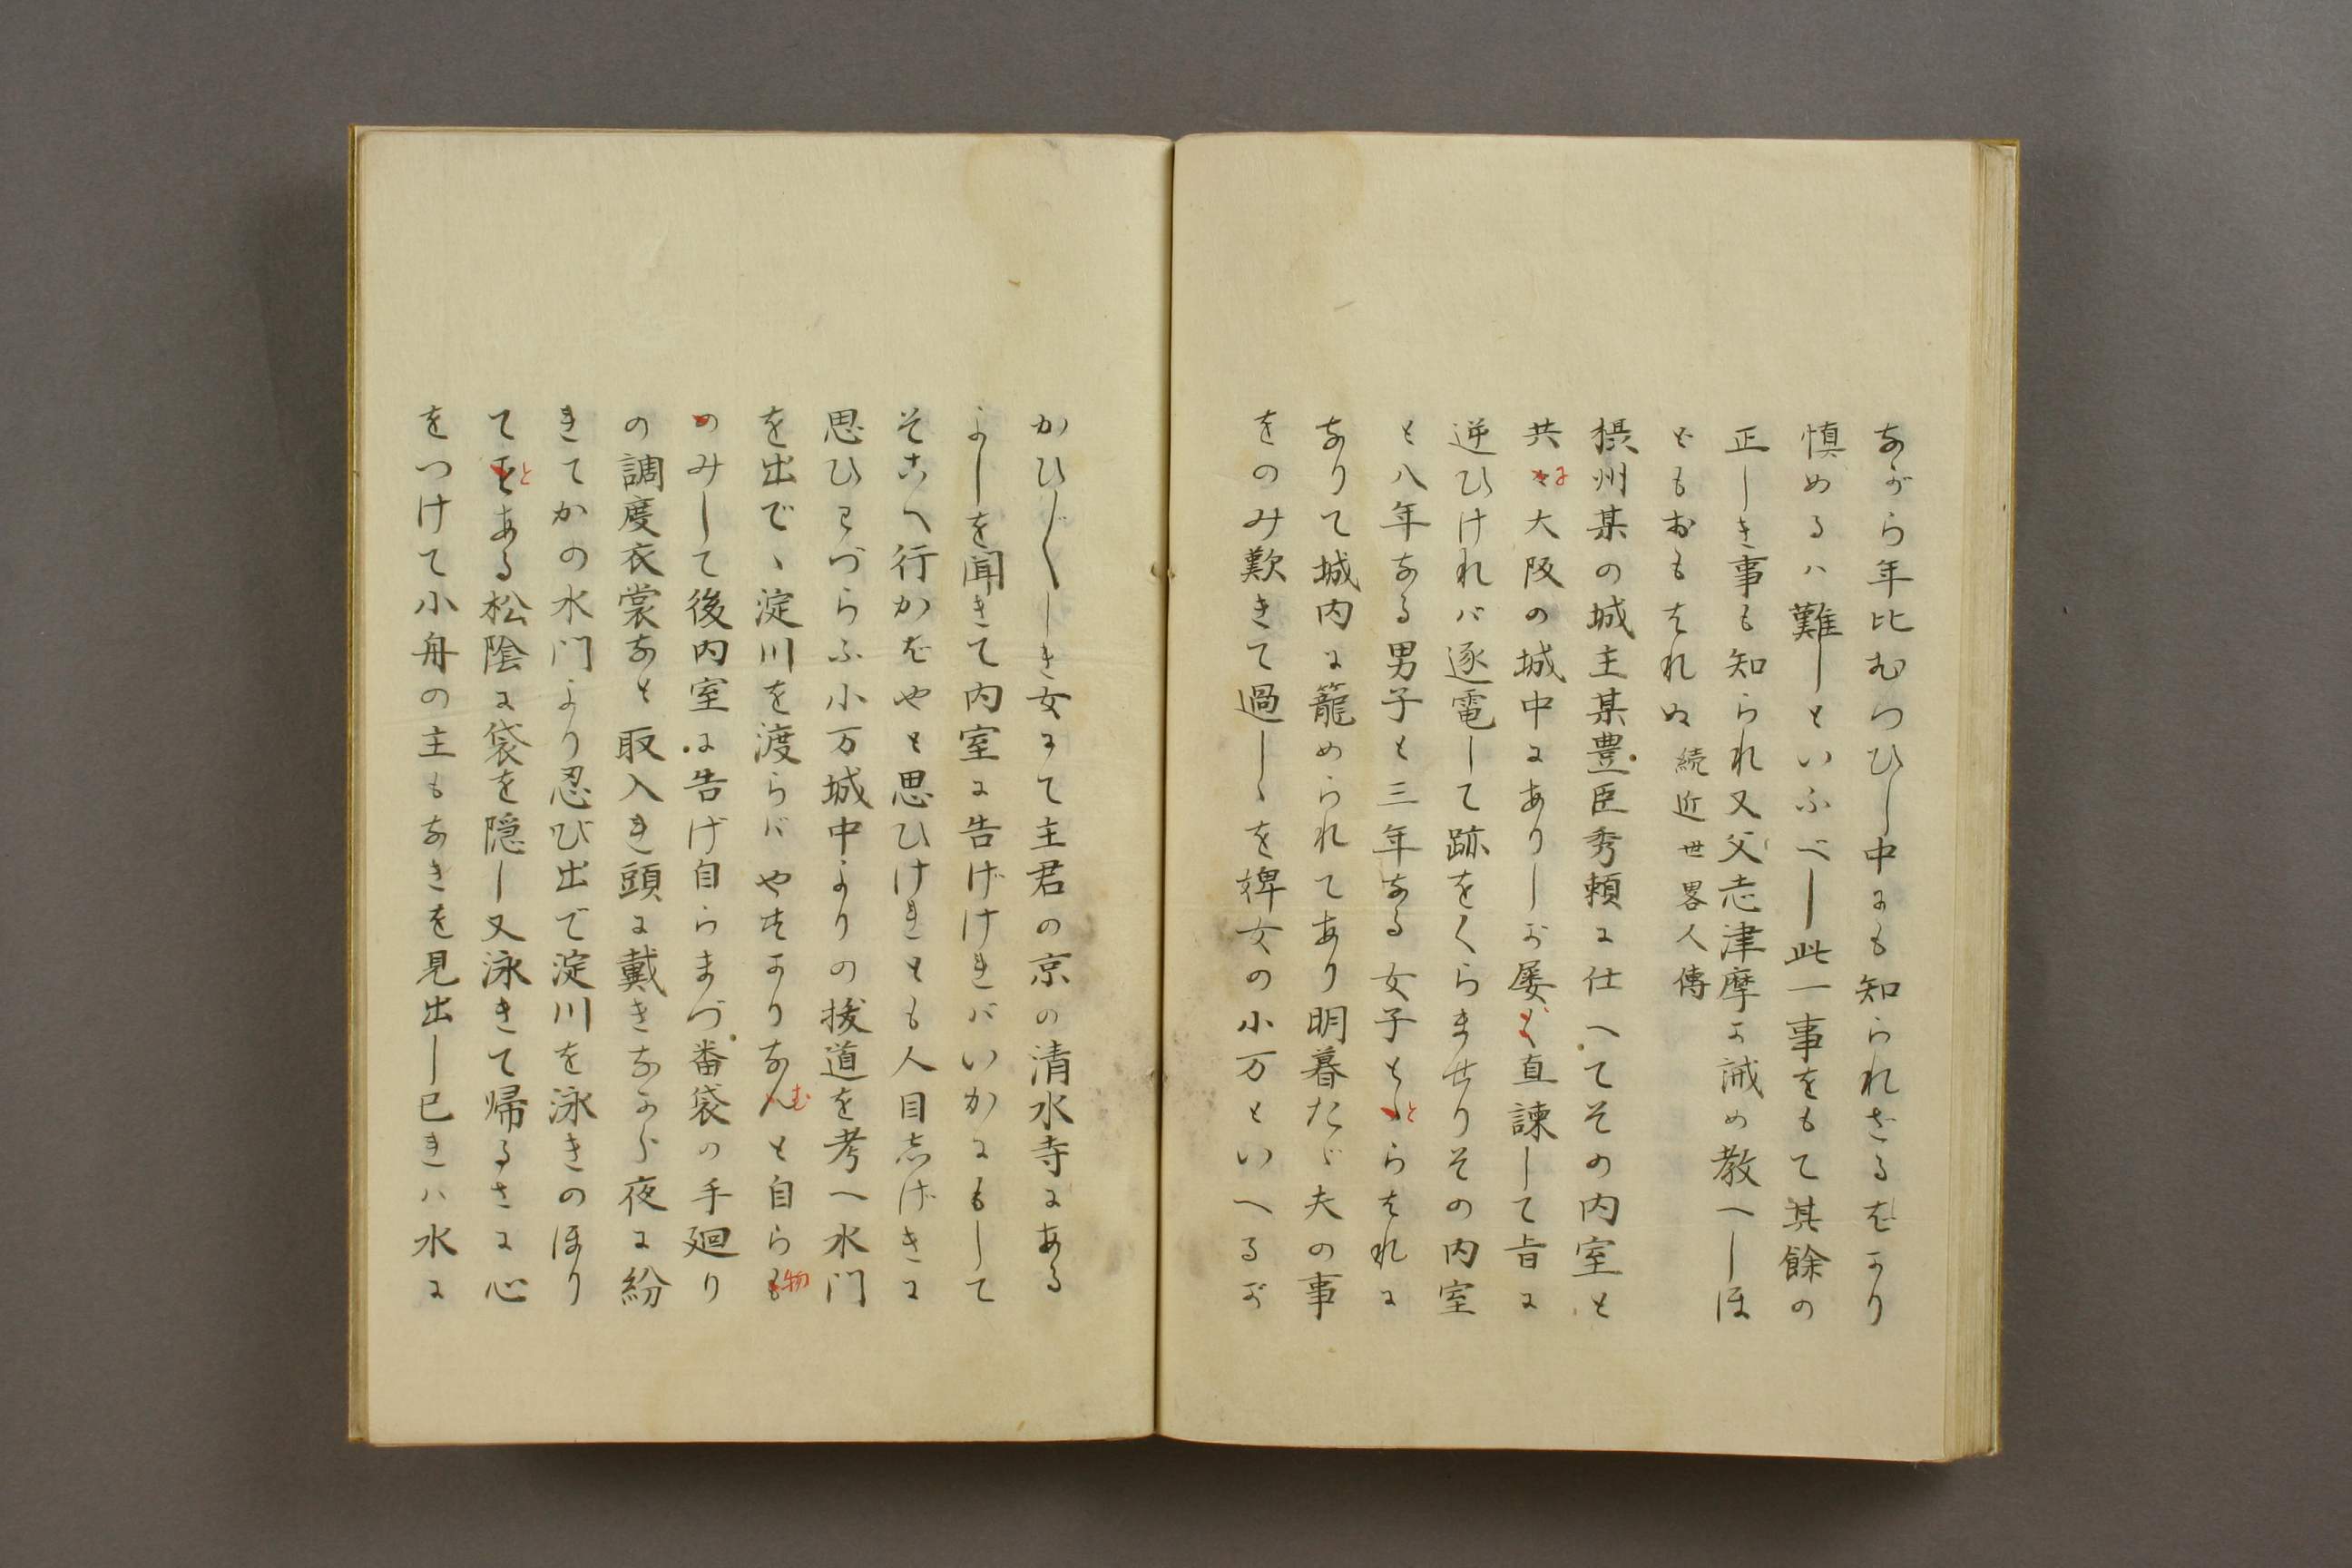 ながら年比むつひし中にも知られざるをより
慎めるハ難しといふべし此一事をもて其餘の
正しき事も知られ又父志津摩に誡め教へしほ
ともおもはれぬ 続近世畧人傳
摂州某の城主某豊臣秀頼に仕へてその内室と
共に大阪の城中にありしが屡ば直諫して旨に
逆ひけれバ逐電して跡をくらませりその内室
と八年なる男子と三年なる女子ととらはれに
なりて城内に籠められてあり明暮たゞ夫の事
をのみ歎きて過しゝを婢女の小万といへるが
かひ〴〵しき女にて主君の京の清水寺にある
よしを聞きて内室に告げけきバいかにもして
そこへ行かばやと思ひけきとも人目志げきに
思ひわづらふ小万城中よりの拔道を考へ水門
を出でゝ淀川を渡らバやすかりなむと自ら物
のみして後内室に告げ自らまづ番袋の手廻り
の調度衣裳など取入き頭に戴きながら夜に紛
きてかの水門より忍び出で淀川を泳きのほり
てとある松陰に袋を隠し又泳きて帰るさに心
をつけて小舟の主もなきを見出し已きハ水に